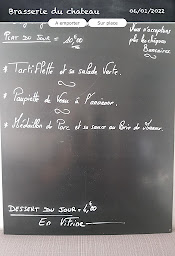 Brasserie du chateau 06/01/2022
A emporter Sur place
PLAT DU JOUR = 10,80
Nous n'acceptons
plus les chèques
Bancaires
* Tartiflette et sa salade Verte.
* Paupiette de Veau à l'ancienne.
* Médaillon de Porc et sa sauce au Brie de Meaux.
DESSERT DU JOUR = 4,80
En Vitrine